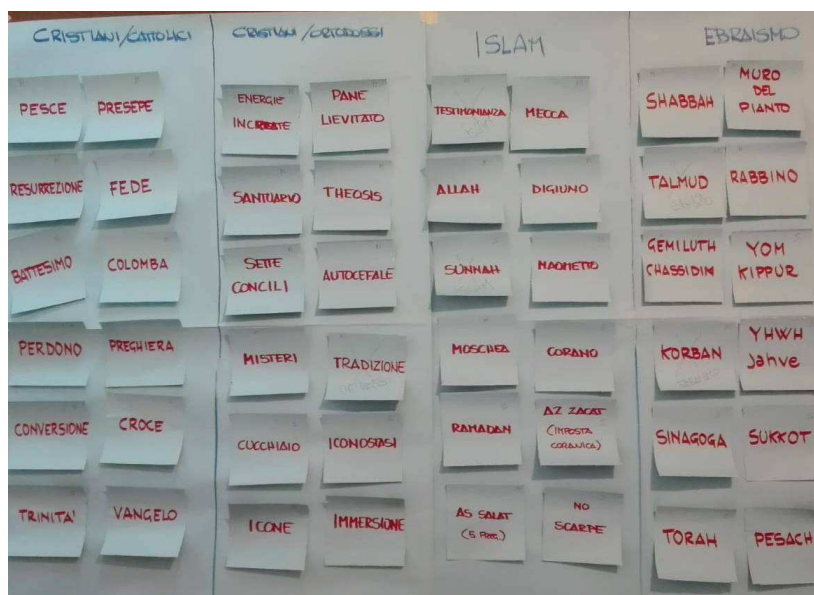 CRISTIANI/CATTOLICI
PESCE
PRESEPE
RESURREZIONE
FEDE
BATTESIMO
COLOMBA
PERDONO
PREGHIERA
CONVERSIONE
CROCE
TRINITA'
VANGELO
CRISTIANI/ORTODOSSI
ENERGIE
INCREATE
PANE
LIEVITATO
SANTUARIO
THEOSIS
SETTE
CONCILI
AUTOCEFALE
MISTERI
TRADIZIONE
CUCCHIAIO
ICONOSTASI
ICONE
IMMERSIONE
ISLAM
TESTIMONIANZA
MECCA
ALLAH
DIGIUNO
SUNNAH
MAOMETTO
MOSCHEA
CORANO
RAMADAN
AZ ZACAT
(IMPOSTA
CORANICA)
AS SALAT
NO
SCARPE
EBRAISMO
SHABBAH
MURO
DEL
PIANTO
TALMUD
RABBINO
GEMILUTH
CHASSIDIM
YOM
KIPPUR
KORBAN
YHWH
Jahve
SINAGOGA
SUKKOT
TORAH
PESACH